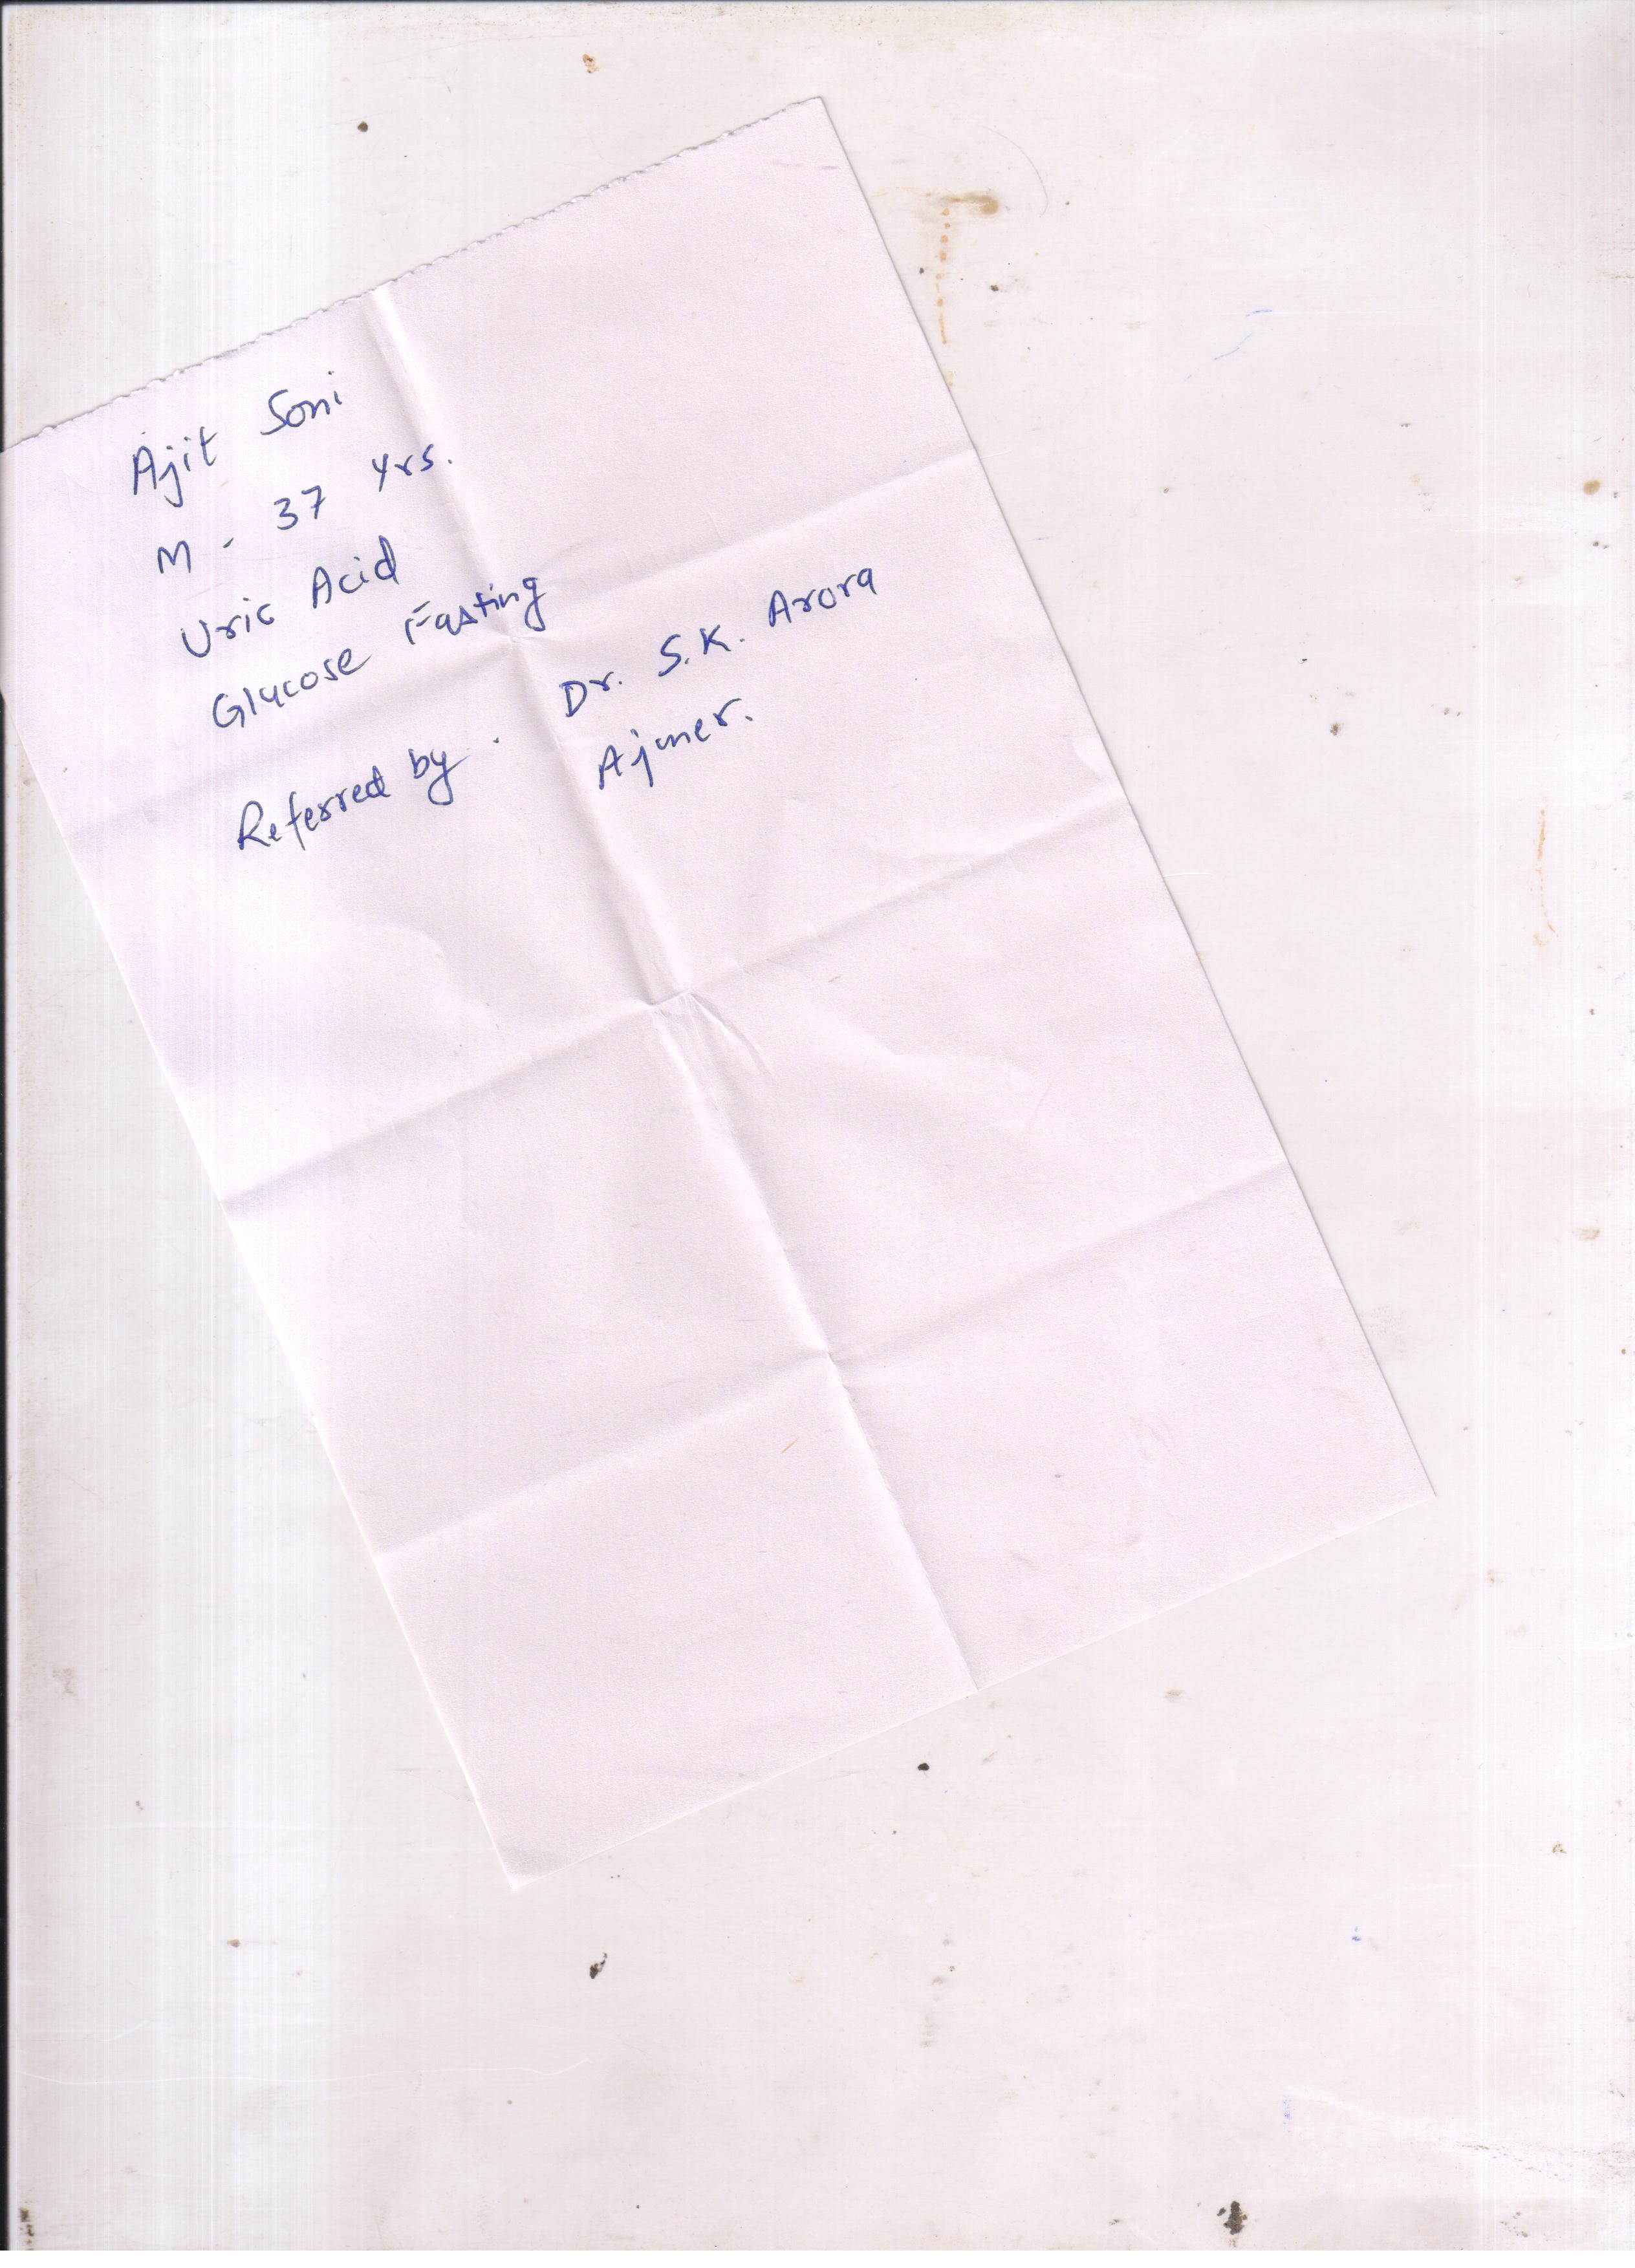 Ajit Soni
M - 37 yrs.
Uric Acid
Glucose Fasting
Referred by . Dr. S.K. Arora
Ajmer.